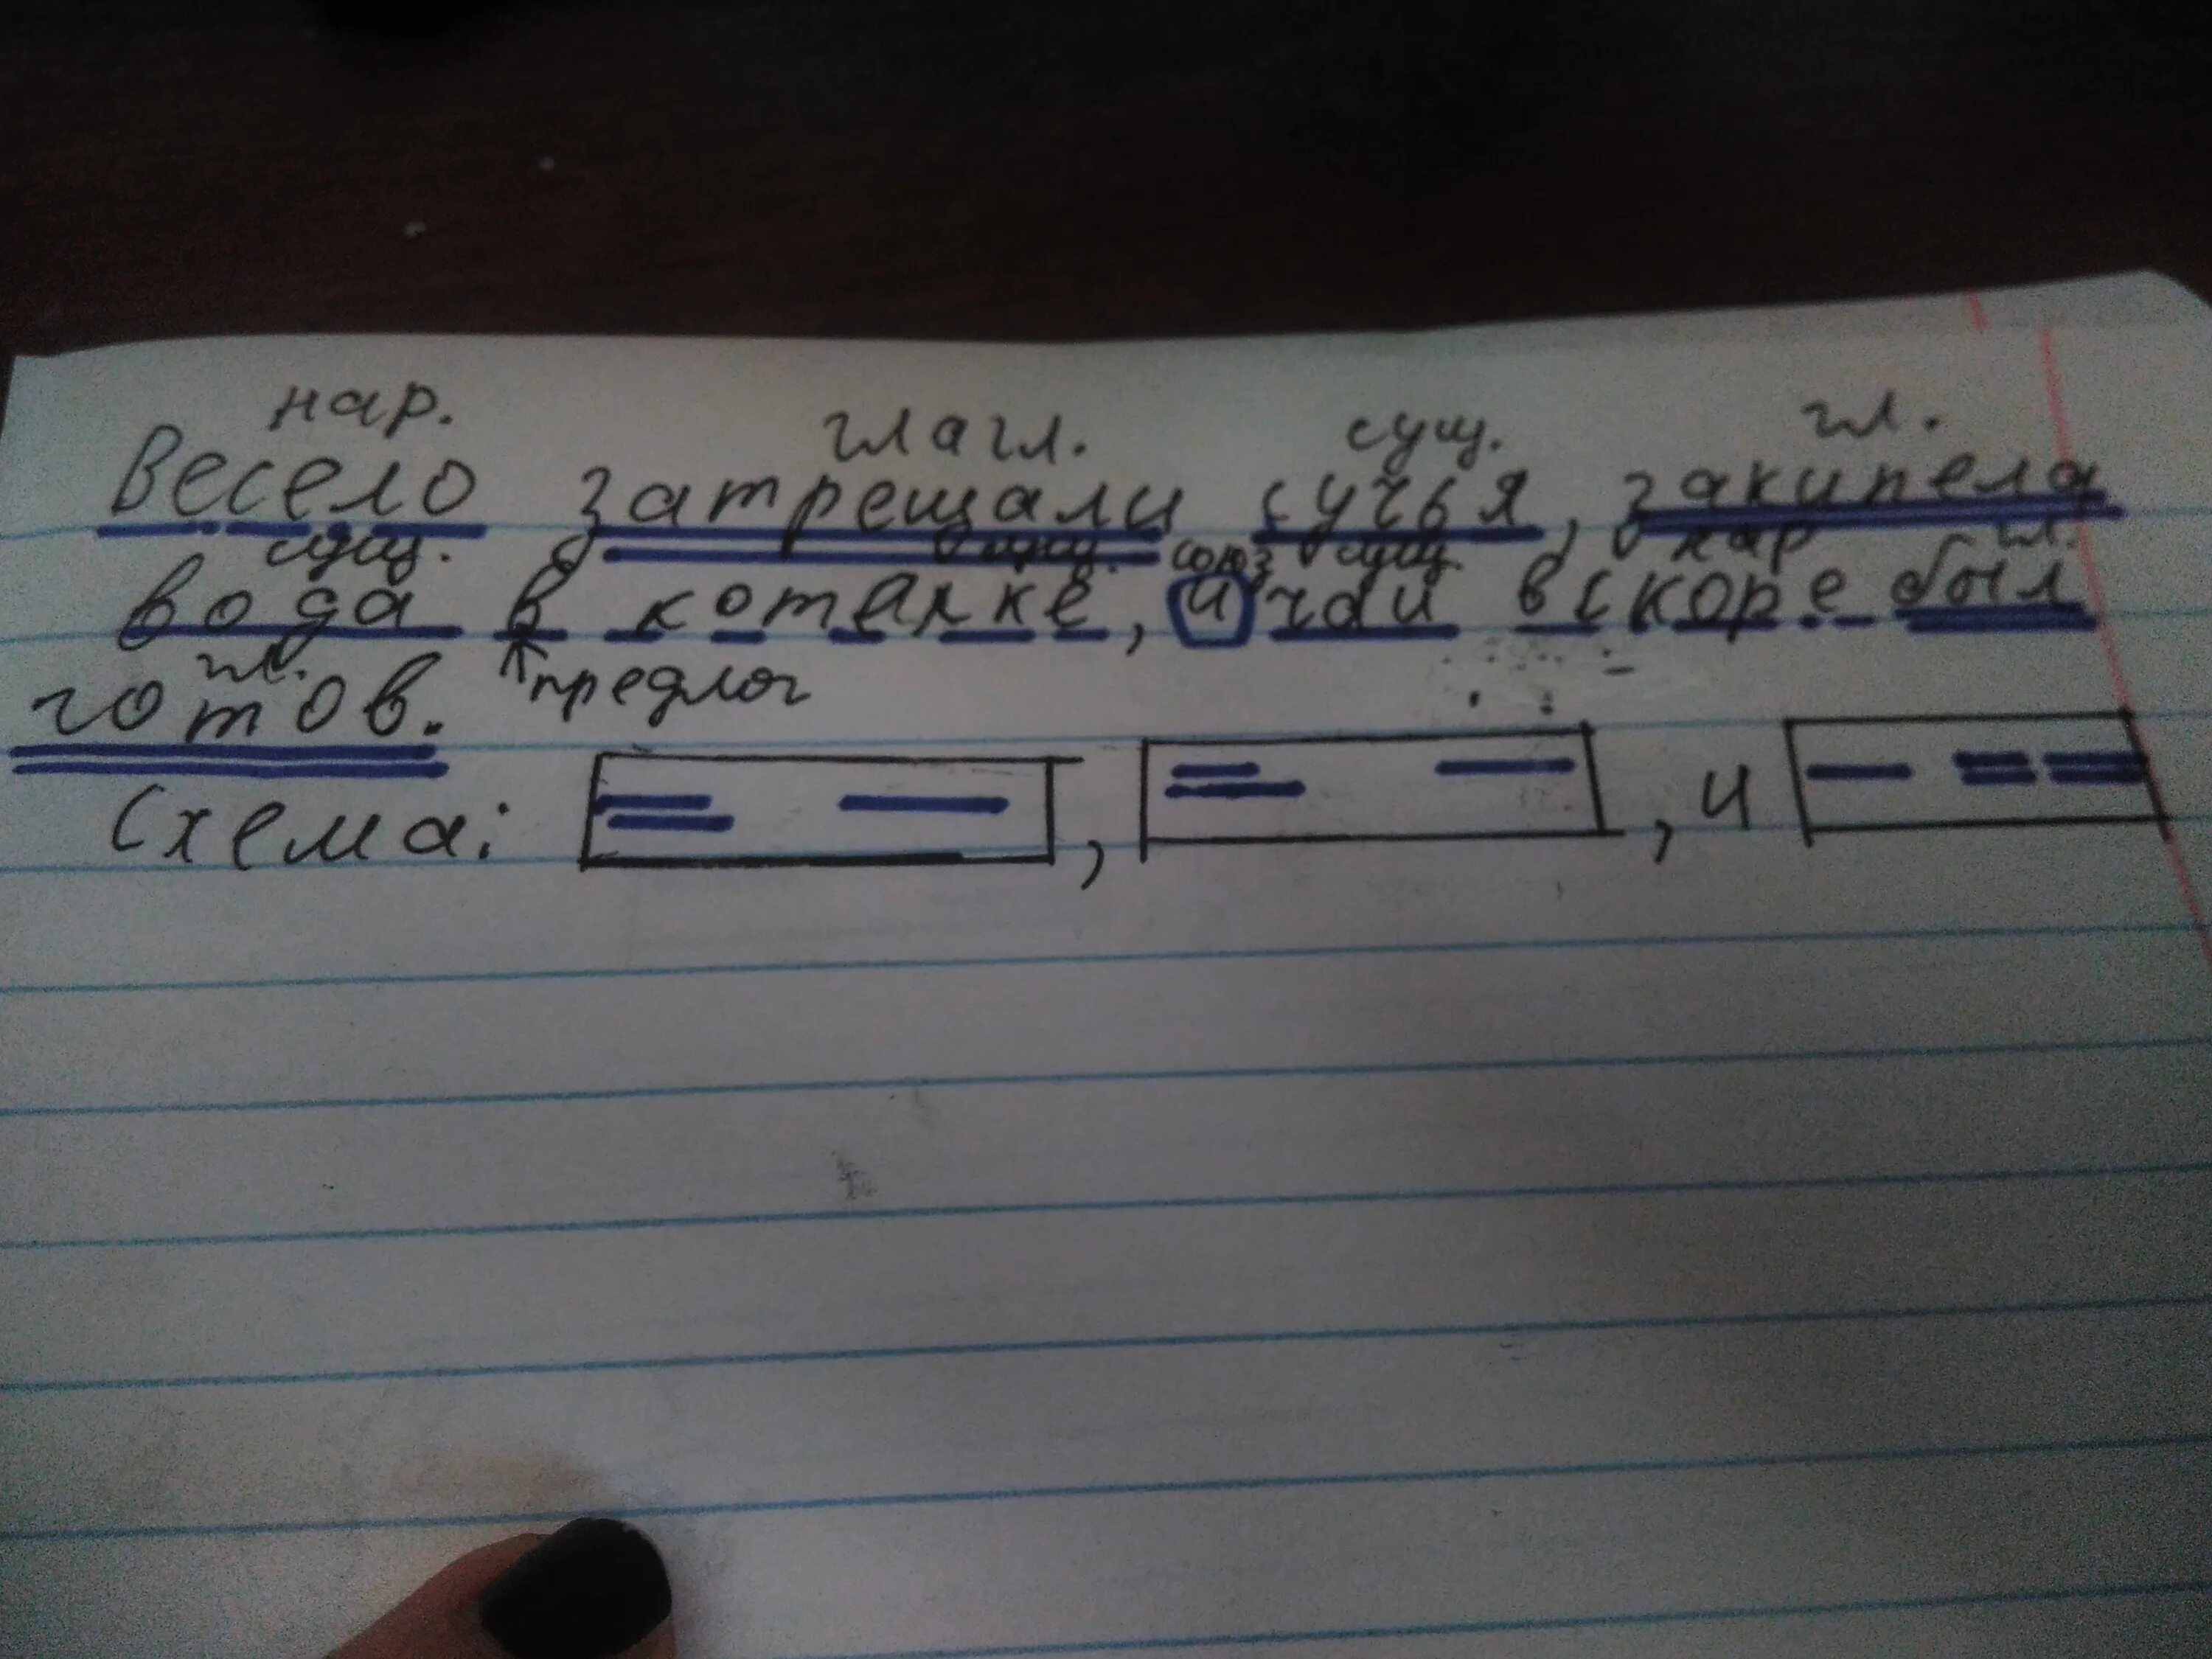 нар. глагл. сущ. гл.
Весело затрещали сучья, закипела
сущ. сущ. союз сущ. нар гл.
вода в котелке, и чай вскоре был
гл. предлог
готов.
Схема: , , и